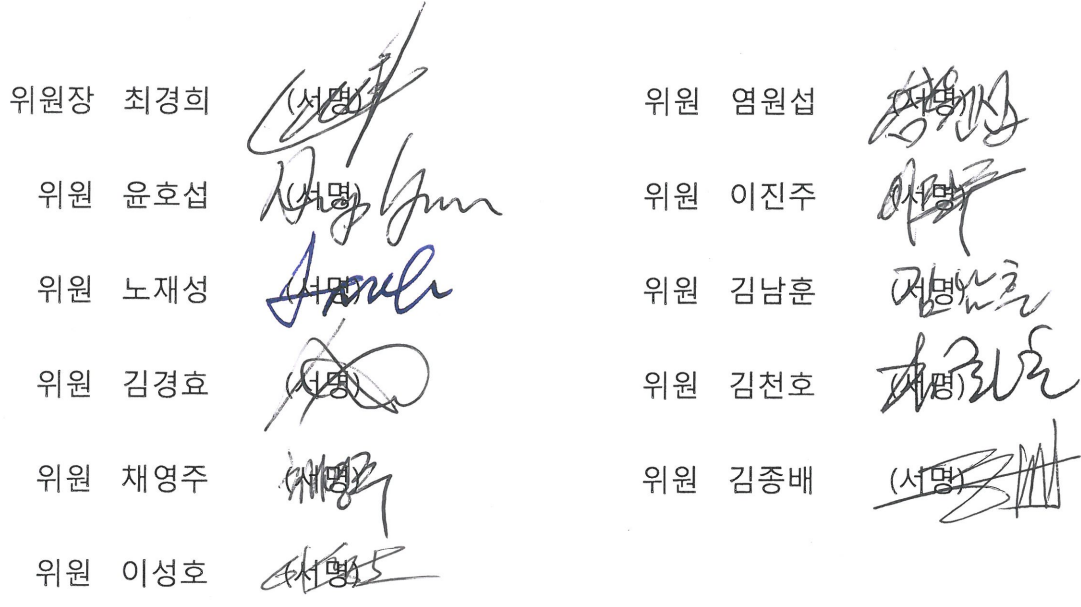 위원장 최경희 (서명)
위원 윤호섭 (서명)
위원 노재성 (서명)
위원 김경효 (서명)
위원 채영주 (서명)
위원 이성호 (서명)
위원 염원섭 (서명)
위원 이진주 (서명)
위원 김남훈 (서명)
위원 김천호 (서명)
위원 김종배 (서명)